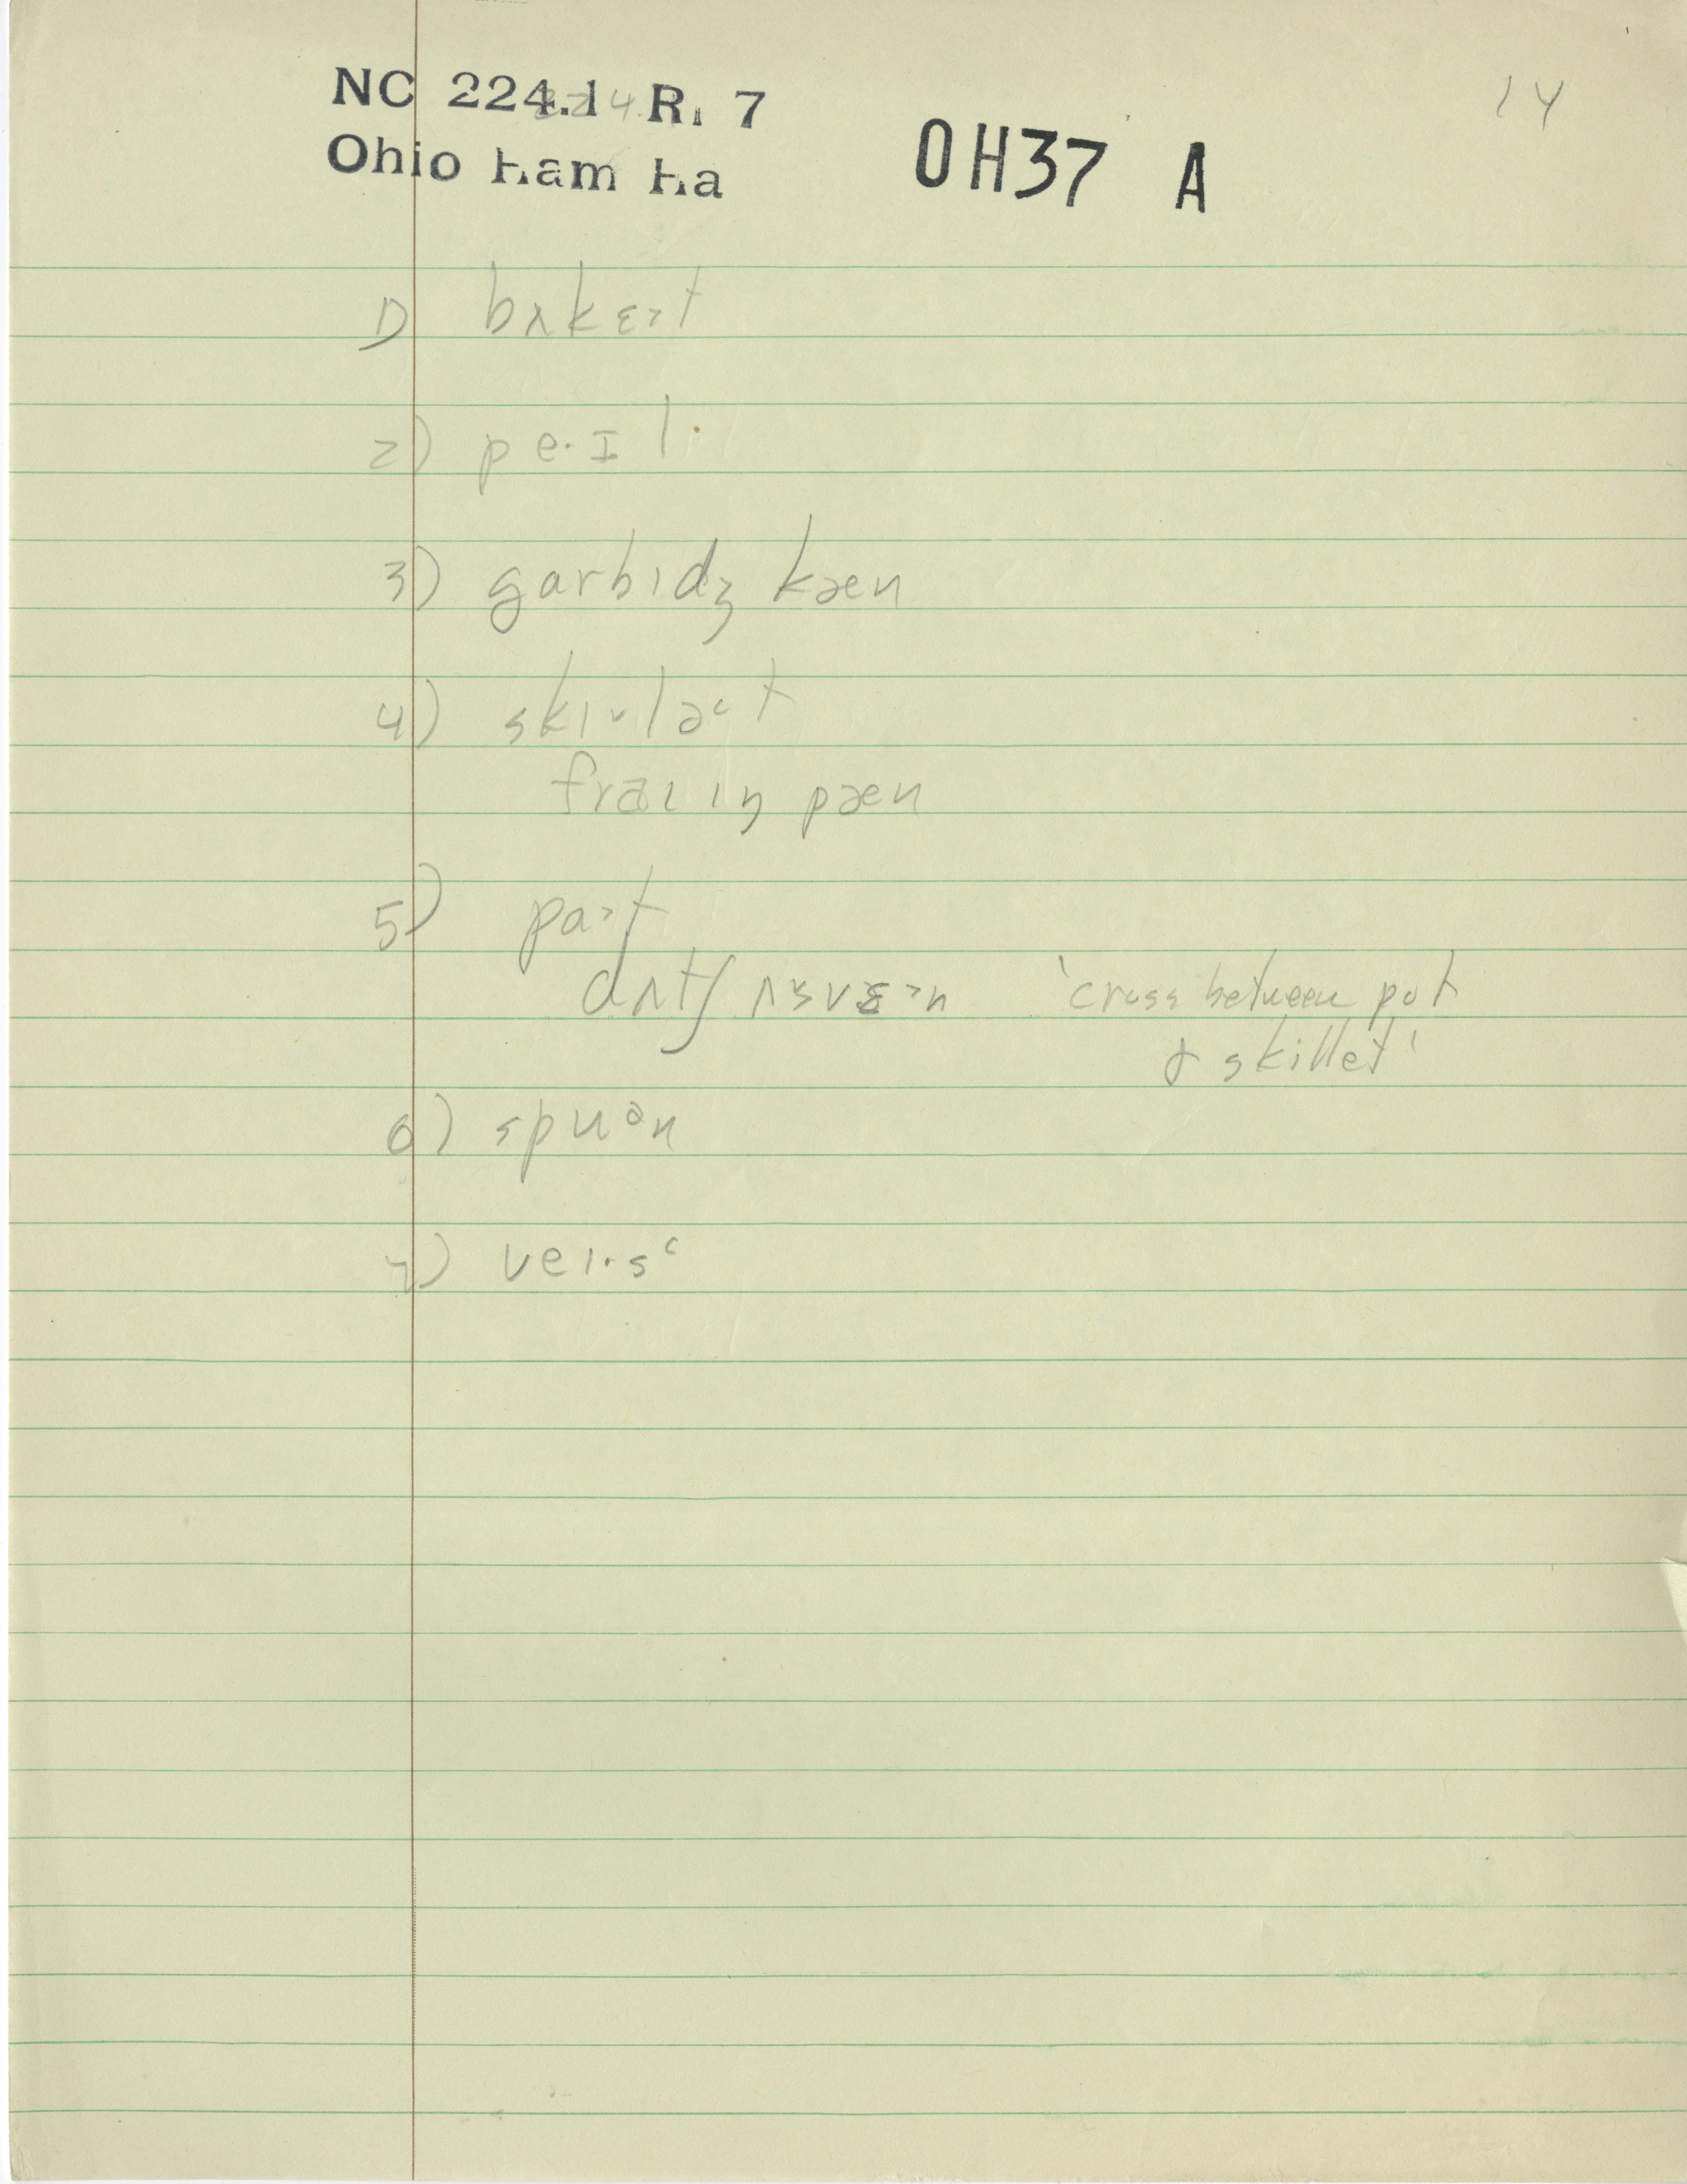 NC 224.1 R. 7
14
Ohio Ham Ha
OH37 A
1) bʌkɛ˃t
2) pe·ɪl
3) garbɪdʒ kæn
4) skɪ˅lə˂t
fraɪɪŋ pæn
5) pa˃t
dʌtʃ ʌ˅vɛ˃n 'cross between pot
& skillet'
6) spuᵊn
7) veɪ·s˂